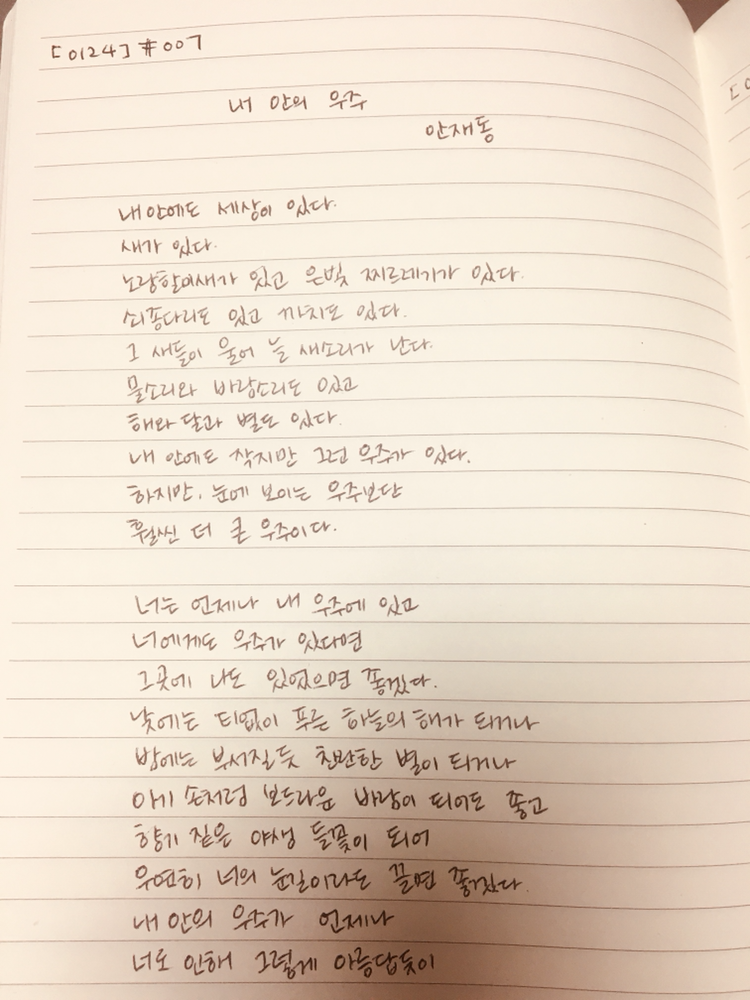 [0124] #007
내 안의 우주
안재동
내 안에도 세상이 있다.
새가 있다.
노랑할미새가 있고 은빛 찌르레기가 있다.
쇠종다리도 있고 까치도 있다.
그 새들이 울어 늘 새소리가 난다.
물소리와 바람소리도 있고
해와 달과 별도 있다.
내 안에도 작지만 그런 우주가 있다.
하지만, 눈에 보이는 우주보단
훨씬 더 큰 우주이다.
너는 언제나 내 우주에 있고
너에게도 우주가 있다면
그곳에 나도 있었으면 좋겠다.
낮에는 티없이 푸른 하늘의 해가 되거나
밤에는 부서질듯 찬란한 별이 되거나
아기 손처럼 보드라운 바람이 되어도 좋고
향기 짙은 야생 들꽃이 되어
우연히 너의 눈길이라도 끌면 좋겠다.
내 안의 우주가 언제나
너로 인해 그렇게 아름답듯이